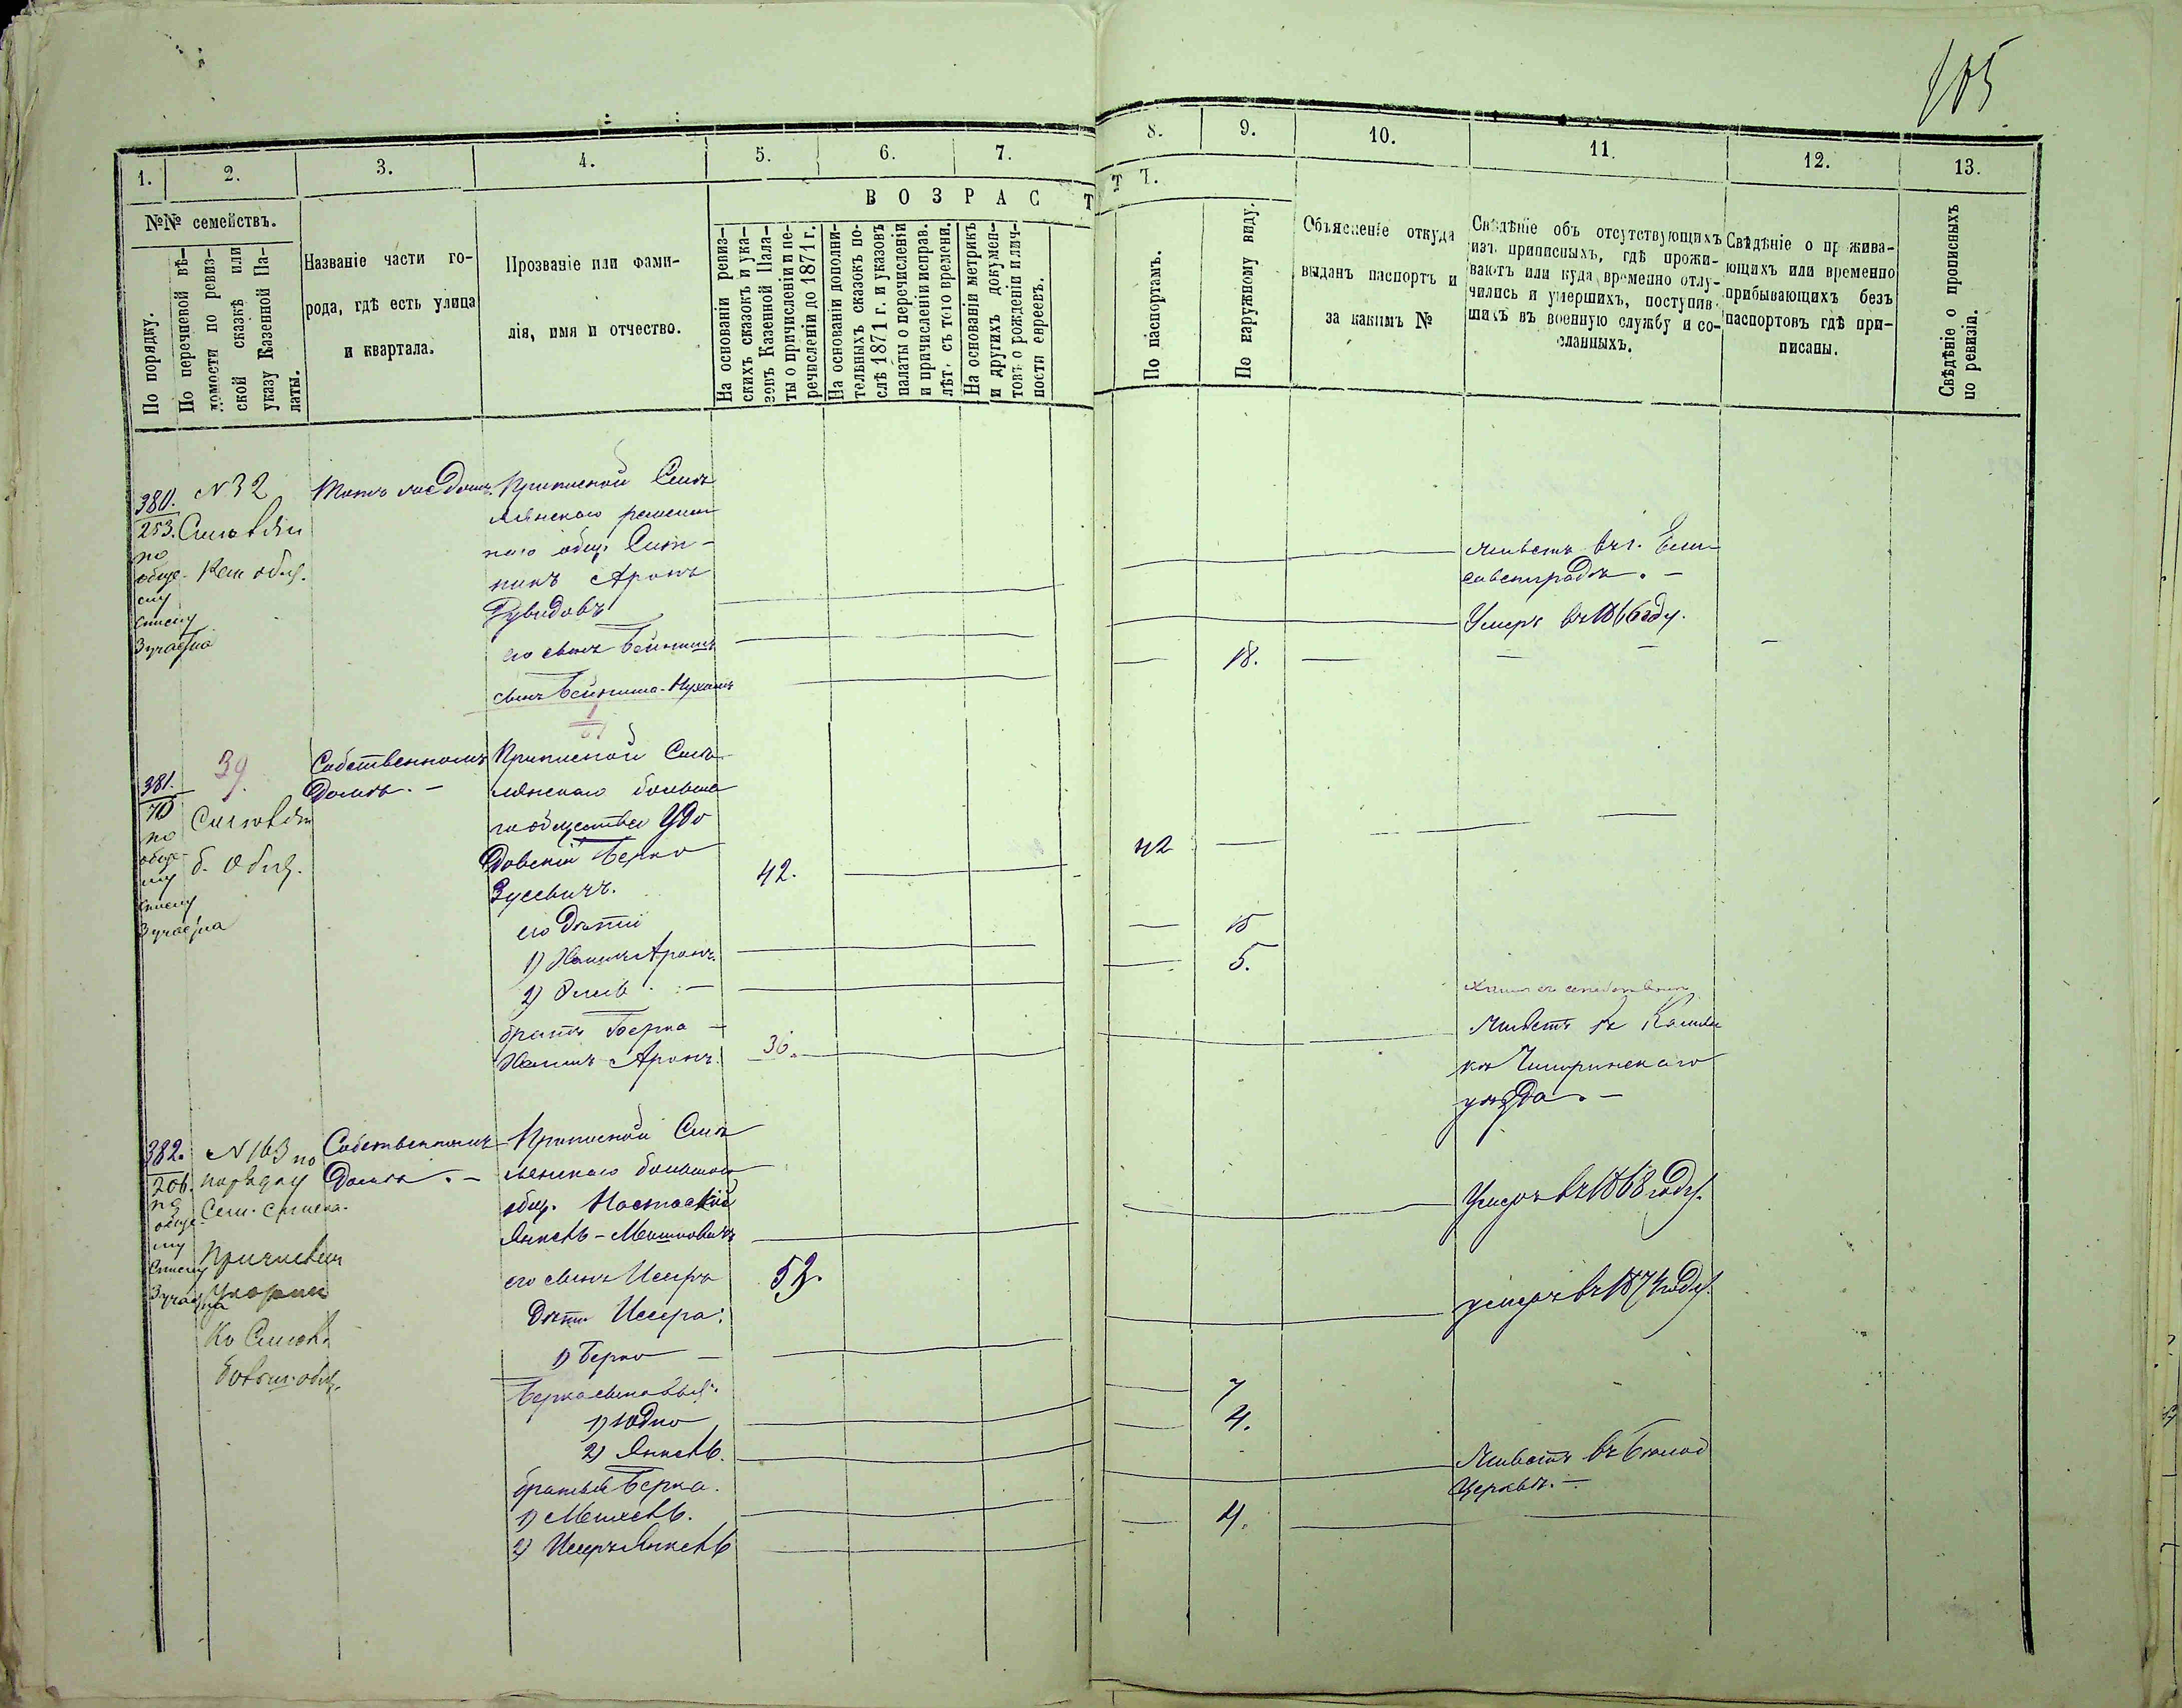 105
1. 2. 3. 4. 5. 6. 7. 8. 9. 10. 11. 12. 13.
№№ семействъ.
По порядку.
По перечневой вѣ-
домости по ревиз-
ской сказкѣ или
указу Казенной Па-
латы.
Названіе части го-
рода, гдѣ есть улица
и квартала.
Прозваніе или фами-
лія, имя и отчество.
ВОЗРАСТ
Т Ъ.
На основаніи ревиз-
скихъ сказокъ и ука-
зовъ Казенной Пала-
ты о причисленіи и пе-
речисленіи до 1871 г.
На основаніи дополни-
тельныхъ сказокъ по-
слѣ 1871 г. и указовъ
палаты о перечисленіи
и причисленіи исправ.
лѣт. съ того времени.
На основаніи метрикъ
и другихъ докумен-
товъ о рожденіи и лич-
ности евреевъ.
По паспортамъ.
По наружному виду.
Объясненіе откуда
выданъ паспортъ и
за какимъ №
Свѣдѣніе объ отсутствующихъ
изъ приписныхъ, гдѣ прожи-
ваютъ или куда временно отлу-
чились и умершихъ, поступив-
шихъ въ военную службу и со-
сланныхъ.
Свѣдѣніе о прожива-
ющихъ или временно
прибывающихъ безъ
паспортовъ гдѣ при-
писаны.
Свѣдѣніе о прописныхъ
по ревизіи.
380.
253.
по
обще-
му
списку
3 участка
N 32
Приписной Смѣ
лянскаго
общ.
Аронъ
Рувидовъ
его сынъ Бейнишъ
сынъ Бейниша-Нухимъ
живетъ въ г. Ели-
саветградѣ. -
Умеръ въ 1866 году.
18.
381.
70
по
обще-
му
списку
3 участка
39.
б. Общ.
Собственномъ
Домѣ. -
Приписной Смѣ
лянскаго больша
го общества Удо
довскій Берко
Зусевичъ.
42.
42
его дѣти
1) Хаимъ Аронъ.
15
2) -
5.
братъ Берка -
Хаимъ Аронъ.
36.
Живетъ въ Камен
кѣ Чигиринскаго
уѣзда. -
382.
206.
по
обще-
му
списку
3 участка
N 163 по
порядку
Сем. списка.
Собственномъ
Домѣ. -
Приписной Смѣ
лянскаго большого
общ.
Янкель - Мошковичъ
Умеръ въ 1868 году.
его сынъ Исеръ
53.
умеръ въ 1874 году.
Дѣти Исера:
1) Берко -
Берка сыновья:
1) Юдко
7
2) Янкель.
4.
братья Берка.
1) Михель.
Живетъ въ Бѣлой
Церквѣ. -
2) Исеръ Янкель
4.